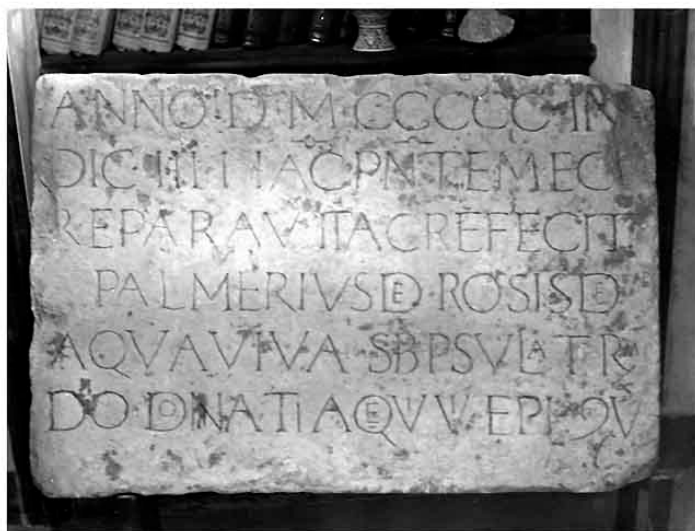 ANNO D M CCCCC IN
DIC IIII HAC PNTEM ECC
REPARAVIT AC REFECIT
PALMERIVS DE ROSIS DE
AQVAVIVA SB PSVLAT R
DO DONATI AQVV EPI QV